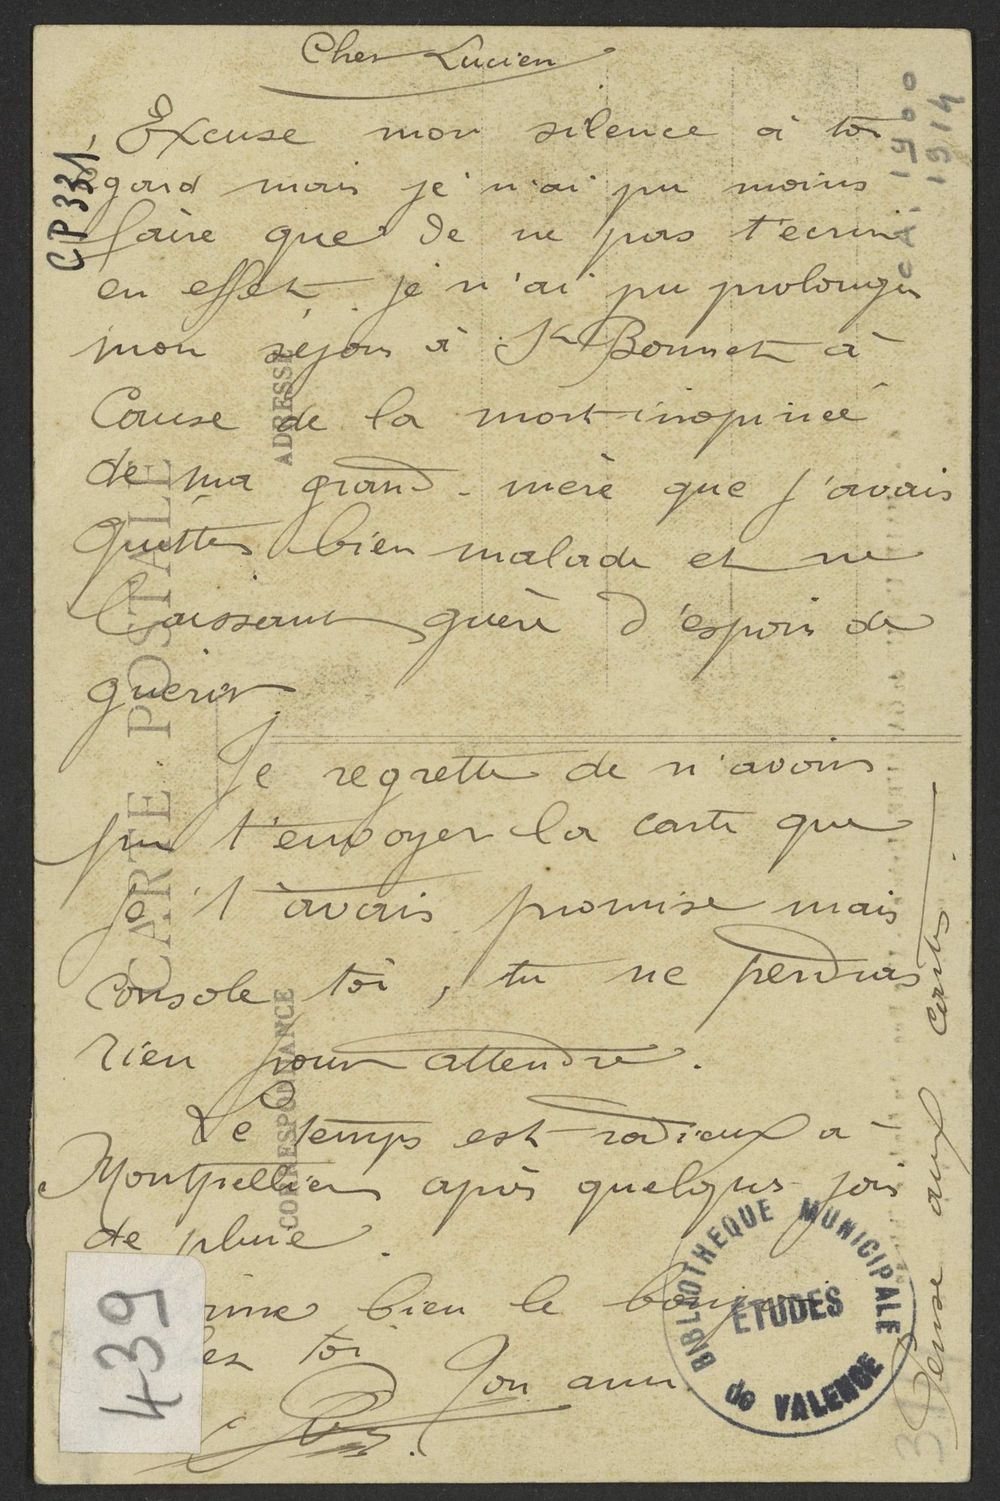 Cher Lucien
Excuse mon silence à ton
égard mais je n'ai pu moins
faire que de ne pas t'ecrire
en effet je n'ai pu prolonger
mon séjour à St Bonnet à
Cause de la mort inopinée
de ma grand-mère que j'avais
quittée bien malade et ne
laissant guère d'espoir de
guérir
Je regrette de n'avoir
pu t'envoyer la carte que
je t'avais promise mais
console toi, tu ne perdras
rien pour attendre.
Le temps est radieux à
Montpellier après quelques jours
de pluie.
bien le bonjour
chez toi
Ton ami
Pense aux cartes.
CARTE POSTALE
ADRESSE
CORRESPONDANCE
CP331
CA. 1900
1914
439
BIBLIOTHEQUE MUNICIPALE
ÉTUDES
de VALENCE